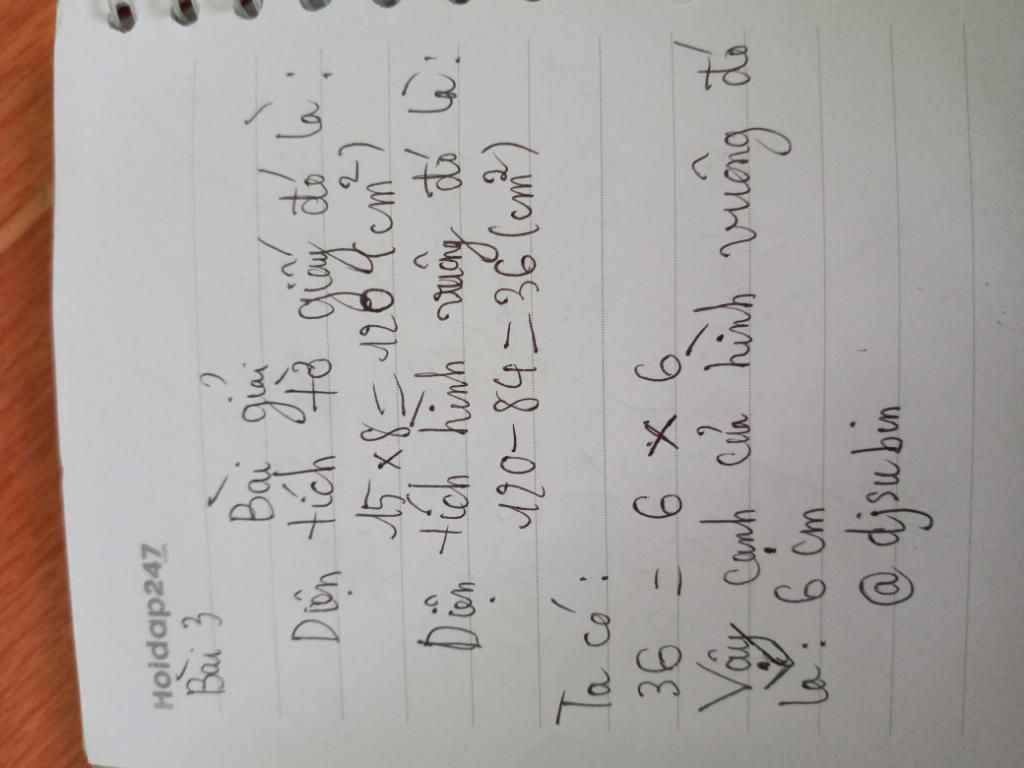 Hoidap247
Bài 3
Bài giải
Diện tích tờ giấy đó là:
15 x 8 = 120 (cm²)
Diện tích hình vuông đó là:
120 - 84 = 36 (cm²)
Ta có:
36 = 6 x 6
Vậy cạnh của hình vuông đó
là: 6 cm
@ djsubin